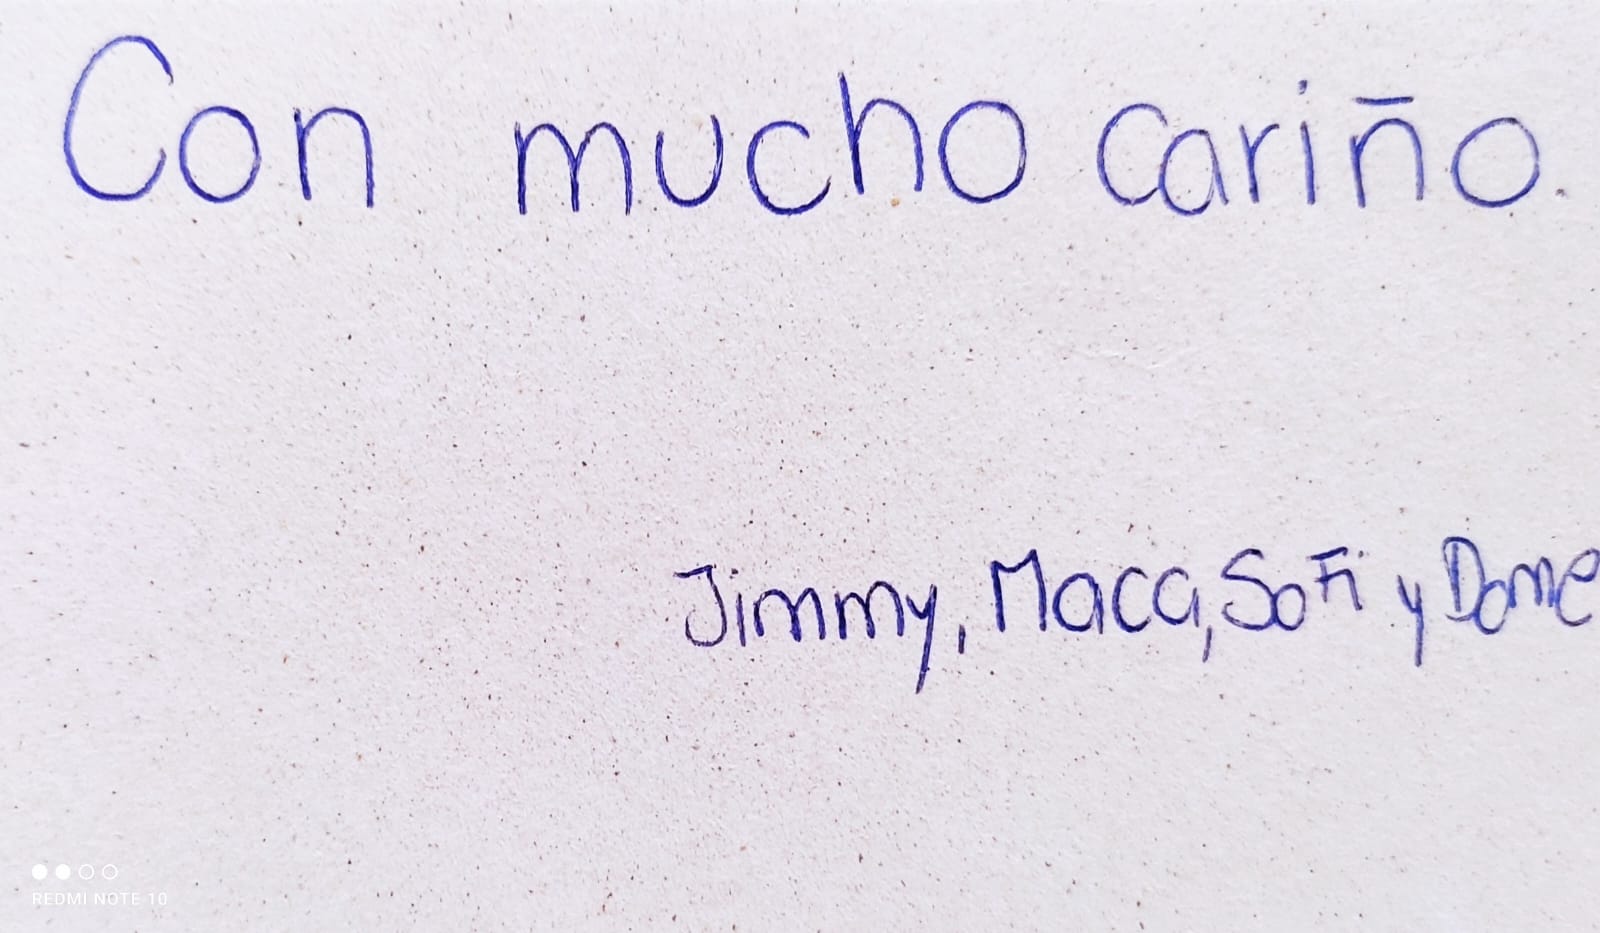 Con mucho cariño.
Jimmy, Maca, Sofi y Dome
REDMI NOTE 10